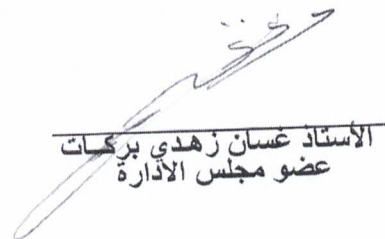 الأستاذ غسان زهدي بركات
عضو مجلس الادارة